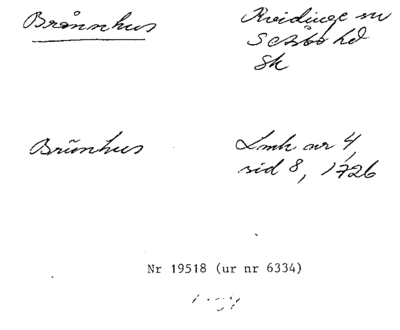 Brännhus
Kvidinge sn
S Åsbo hd
Sk
Brünhus
Lmh avr 4,
sid 8, 1726
Nr 19518 (ur nr 6334)